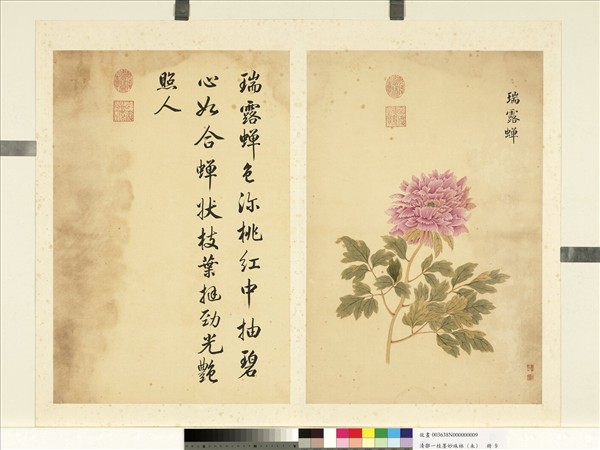 瑞露蝉
瑞露蝉色深桃红中抽碧
心如合蝉状枝葉挺勁光艷
照人
故畫 003638N000000009
清鄒一桂墨妙珠林（未） 冊 9